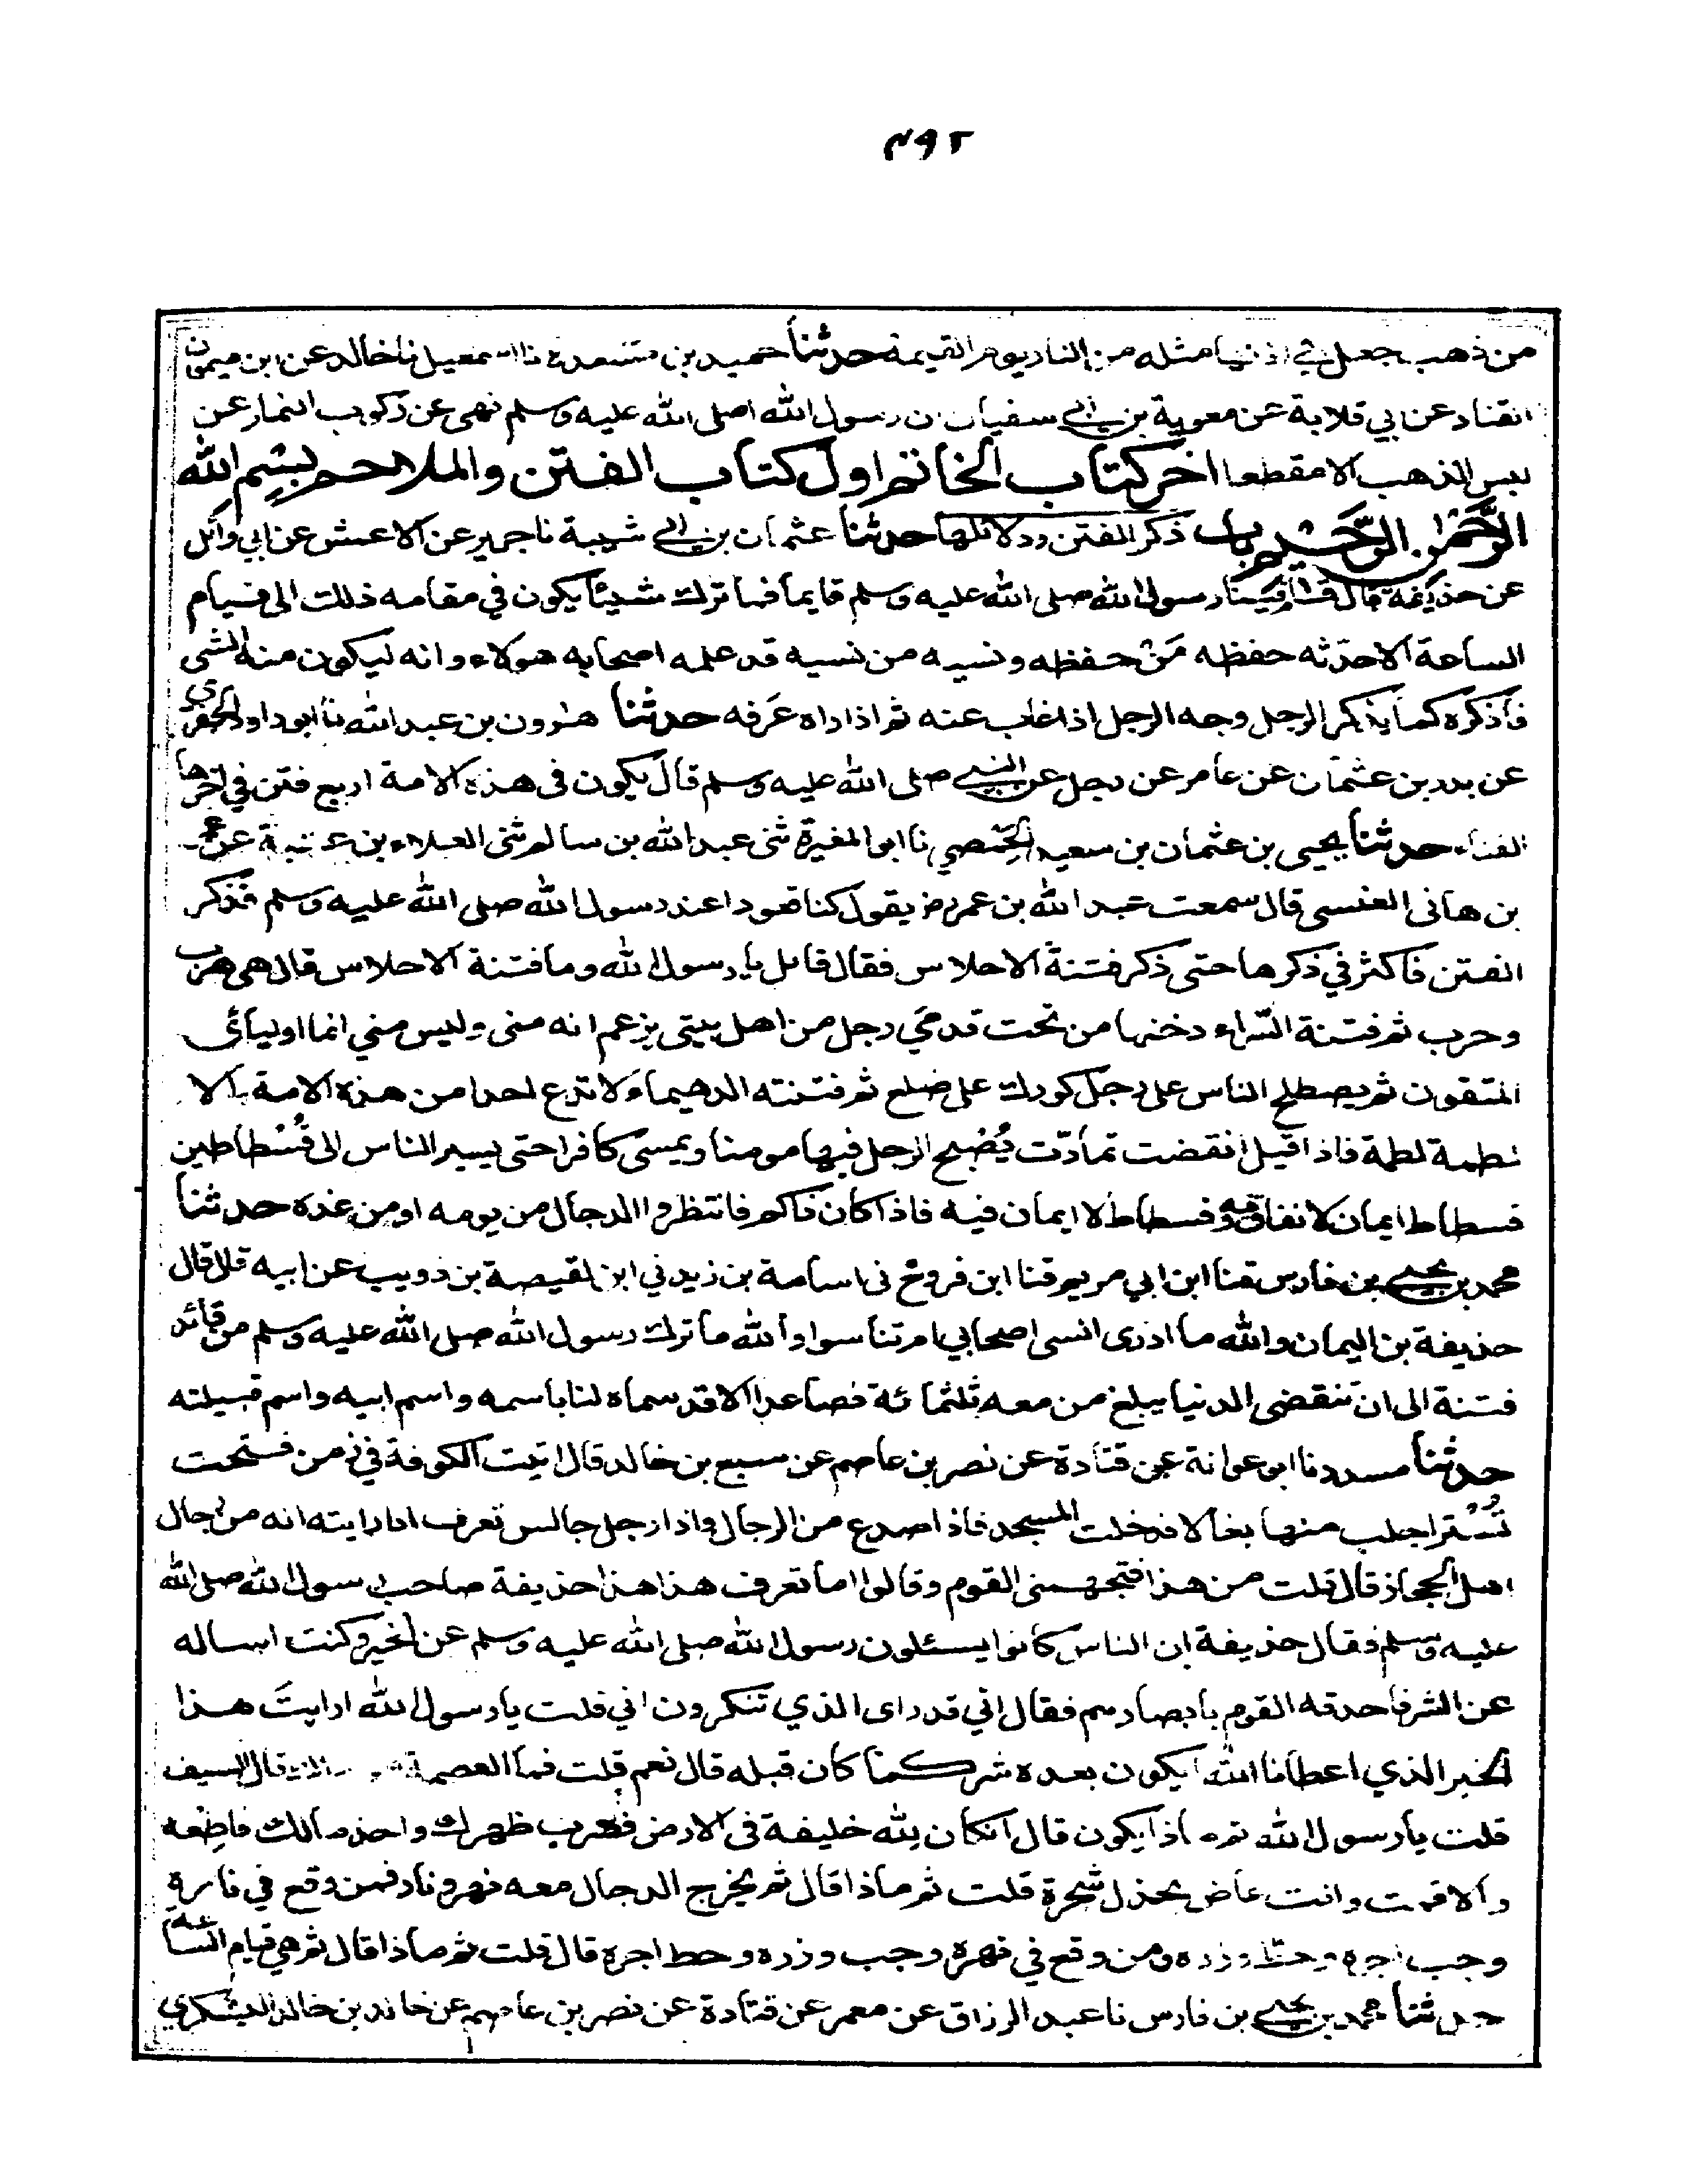 ٤٩٢
من ذهب جعل في اذنها مثله من النار يوم القيمة حدثنا حميد بن مسعدة نا اسمعيل نا خالد عن ابن ميمون
القناد عن ابي قلابة عن معوية بن ابي سفيان ان رسول الله صلى الله عليه وسلم نهى عن ركوب النمار عن
لبس الذهب الا مقطعا اخر كتاب الخاتم اول كتاب الفتن والملاحم بِسْمِ الله
الرَّحْمٰن الرَّحِيْم باب ذكر الفتن ودلائلها حدثنا عثمان بن ابي شيبة نا جرير عن الاعمش عن ابي وائل
عن حذيفة قال قام فينا رسول الله صلى الله عليه وسلم قايما فما ترك شيئا يكون في مقامه ذلك الى قيام
الساعة الا حدثه حفظه مَنْ حفظه ونسيه من نسيه قد علمه اصحابه هولاء وانه ليكون منه الشى
فاذكره كما يذكر الرجل وجه الرجل اذا غاب عنه ثم اذا راه عَرفه حدثنا هٰرون بن عبد الله نا ابو داود الحفري
عن بدر بن عثمان عن عامر عن رجل عن النبي صلى الله عليه وسلم قال يكون فى هذه الامة اربع فتن في اخرها
الفناء حدثنا يحيى بن عثمان بن سعيد الحِمْصي نا ابو المغيرة ثنى عبد الله بن سالم ثنى العلاء بن عتبة عن عمير
بن هانى العنسى قال سمعت عبد الله بن عمر رض يقول كنا قعودا عند رسول الله صلى الله عليه وسلم فذكر
الفتن فاكثر في ذكرها حتى ذكر فتنة الاحلاس فقال قائل يا رسول الله وما فتنة الاحلاس قال هى هرب
وحرب ثم فتنة السَّراء دخنها من تحت قدمَي رجل من اهل بيتى يزعم انه منى وليس مني انما اوليائى
المتقون ثم يصطلح الناس على رجل كورك على ضلع ثم فتنته الدهيماء لا تدع احدا من هذه الامة الا
لطمة لطمة فاذا قيل انقضت تمادّت يُصْبح الرجل فيها مومنا ويمسى كافرا حتى يسير الناس الى فُسْطاطين
فسطاط ايمان لا نفاق فيه وفسطاط لا ايمان فيه فاذا كان ذاكم فانتظروا الدجال من يومه او من غده حدثنا
محمد بن يحيى بن فارس قنا ابن ابي مريم قنا ابن فروخ نى اسامة بن زيد ني ابن لقبيصة بن ذويب عن ابيه قال قال
حذيفة بن اليمان والله ما ادرى انسى اصحابي ام تناسوا والله ما ترك رسول الله صلى الله عليه وسلم من قائد
فتنة الى ان تنقضى الدنيا يبلغ من معه ثلثمائة فصاعدا الا قد سماه لنا باسمه واسم ابيه واسم قبيلته
حدثنا مسدد نا ابو عوانة عن قتادة عن نصر بن عاصم عن سبيع بن خالد قال اتيت الكوفة في زمن فتحت
تُسْتُر اجلب منها بغالا فدخلت المسجد فاذا صدع من الرجال واذا رجل جالس تعرف اذا رايته انه من رجال
اهل الحجاز قال قلت من هذا فتجهمنى القوم وقالوا اما تعرف هذا هذا حذيفة صاحب رسول الله صلى الله
عليه وسلم فقال حذيفة ان الناس كانوا يسئلون رسول الله صلى الله عليه وسلم عن الخير وكنت اساله
عن الشر فاحدقه القوم بابصارهم فقال اني قد راى الذي تنكرون اني قلت يا رسول الله ارايتَ هذا
الخير الذي اعطانا الله ايكون بعده شر كما كان قبله قال نعم قلت فما العصمة قال السيف
قلت يا رسول الله ثم ماذا يكون قال ان كان لله خليفة فى الارض فضرب ظهرك واخذ مالك فاطعه
والا فمت وانت عاض بجذل شجرة قلت ثم ماذا قال ثم يخرج الدجال معه نهر ونار فمن وقع في ناره
وجب اجره وحط وزره ومن وقع في نهره وجب وزره وحط اجره قال قلت ثم ماذا قال ثم هي قيام الساعة
حدثنا محمد بن يحيى بن فارس نا عبد الرزاق عن معمر عن قتادة عن نصر بن عاصم عن خالد بن خالد اليشكري